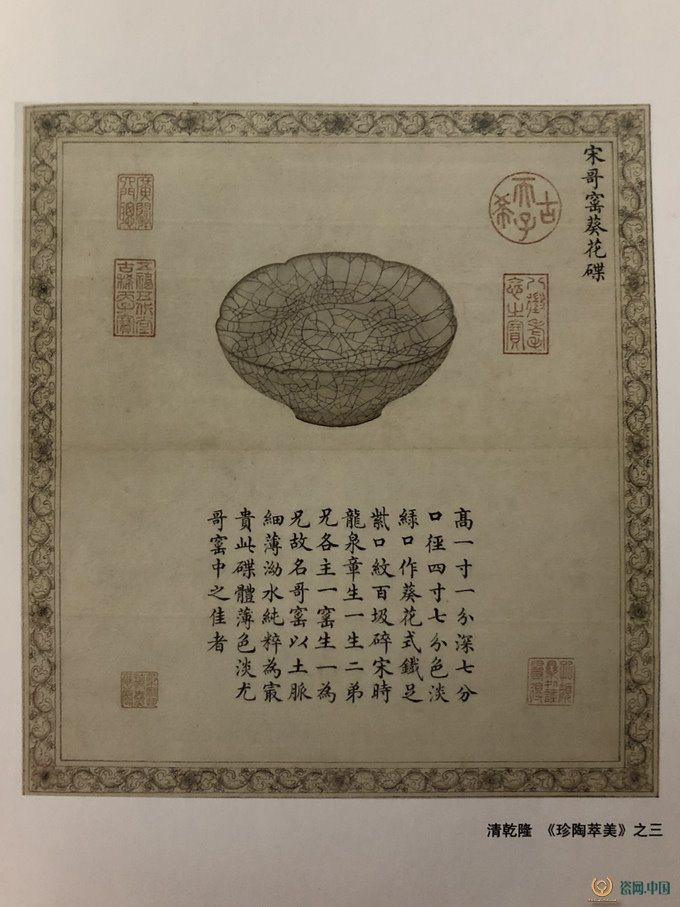 宋哥窑葵花碟
古希天子
八徵耄念之寶
五福五代堂古稀天子寶
髙一寸一分深七分
口徑四寸七分色淡
緑口作葵花式鐵足
紫口紋百圾碎宋時
龍泉章生一生二弟
兄各主一窑生一為
兄故名哥窑以土脈
細薄泑水純粹為㝡
貴此碟體薄色淡尤
哥窑中之佳者
清乾隆 《珍陶萃美》之三
瓷网.中国